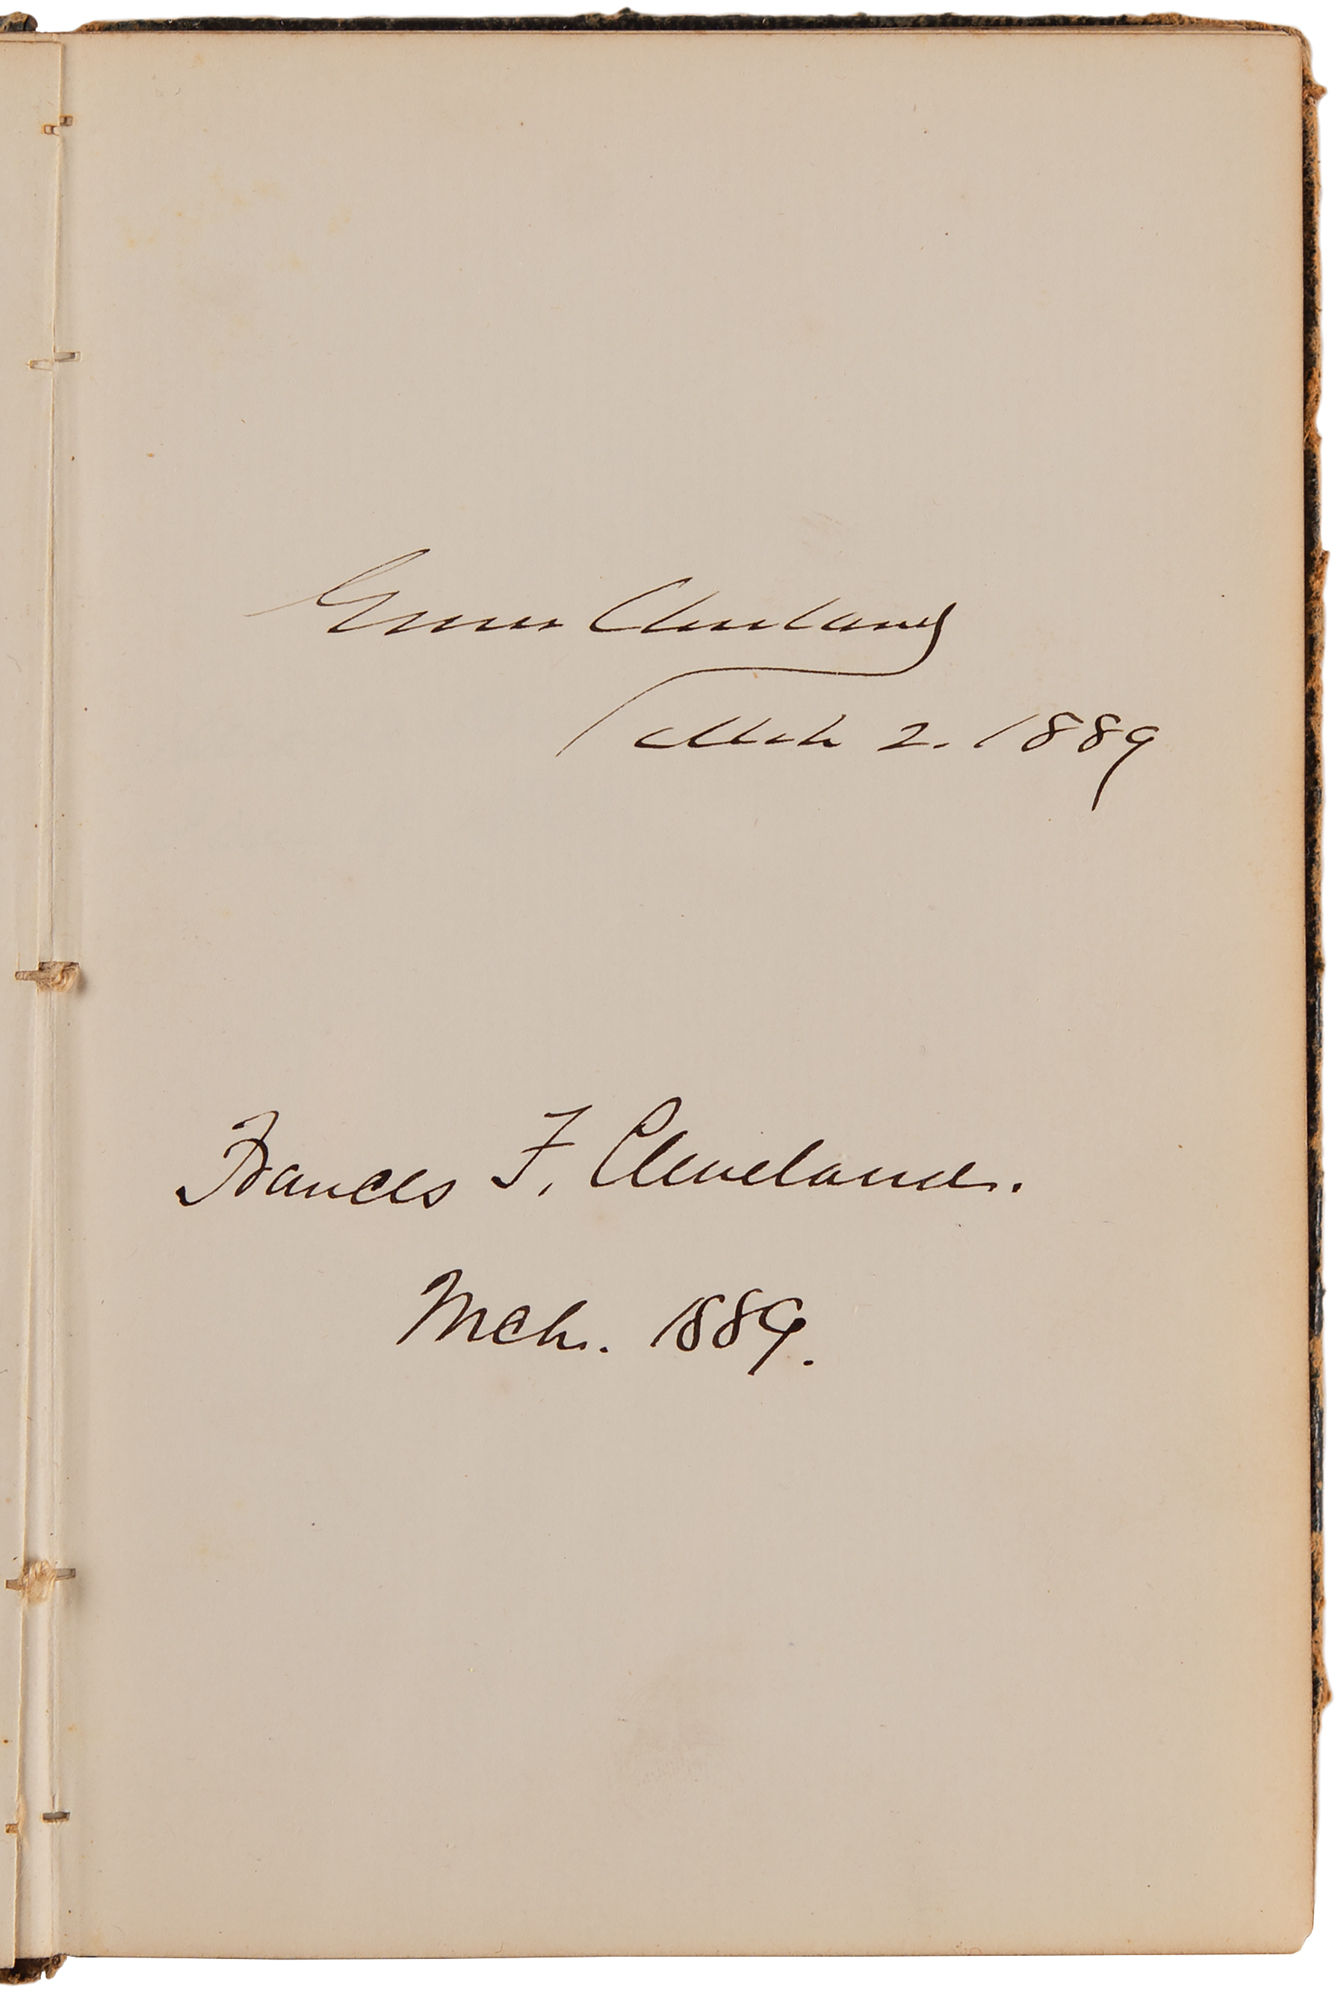 Grover Cleveland
Mch 2. 1889
Frances F. Cleveland.
Mch. 1889.